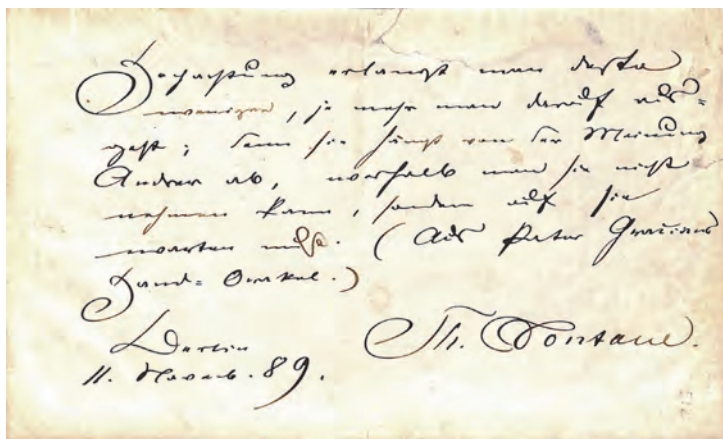 Hochachtung erlangt man desto
weniger, je mehr man darauf aus=
geht; denn sie hängt von der Meinung
Andrer ab, weshalb man sie nicht
nehmen kann, sondern auf sie
warten muß. (Aus Pater Gracians
Hand= Orakel.)
Berlin
11. Novemb. 89.
Th. Fontane.